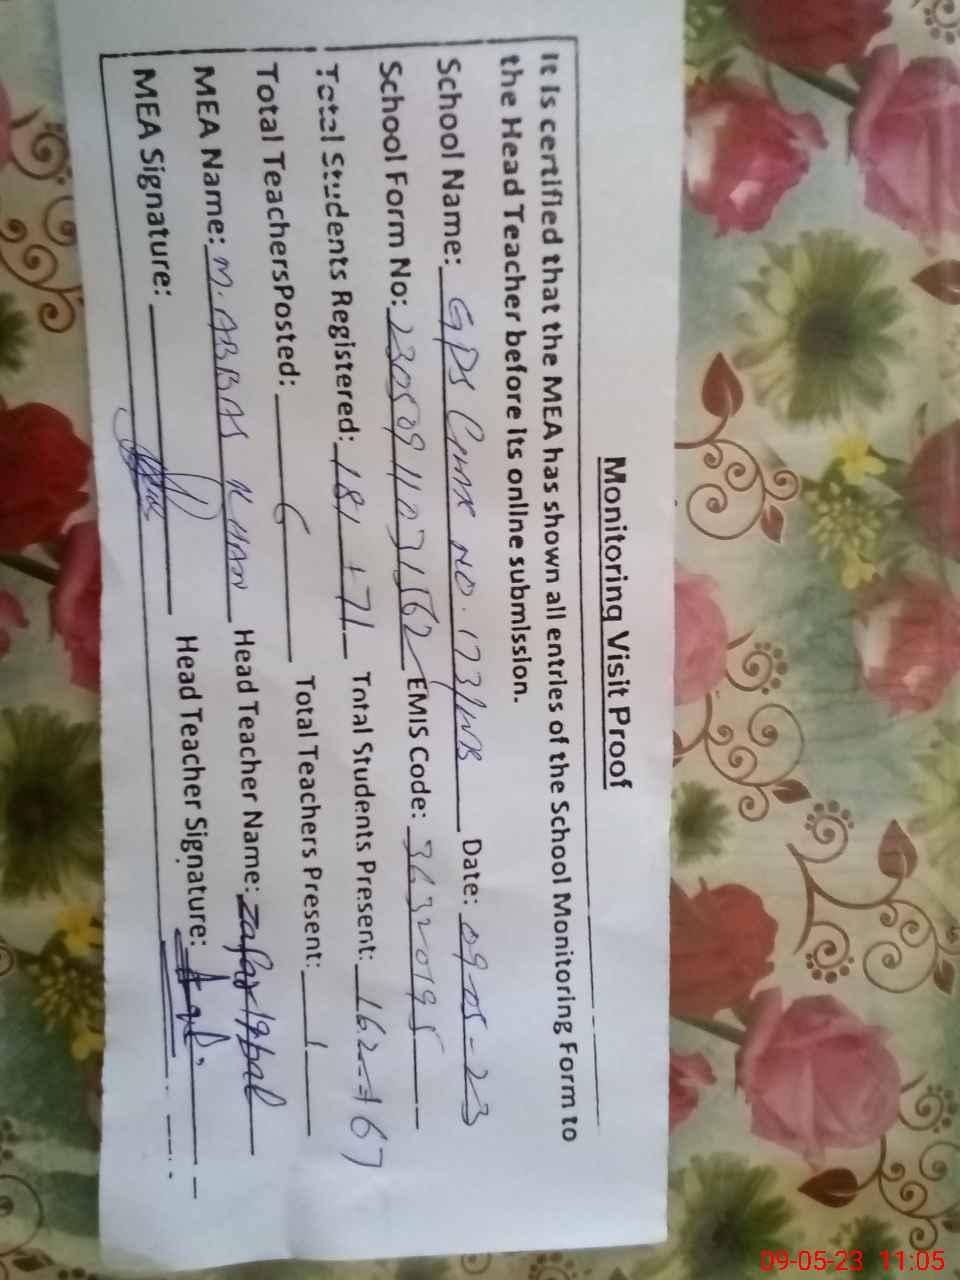 Monitoring Visit Proof
It is certified that the MEA has shown all entries of the School Monitoring Form to
the Head Teacher before its online submission.
School Name: GPS Chak NO. 173/WB Date: 09-05-23
School Form No: 230509110731562 EMIS Code: 36320195
Total Students Registered: 181 +71 Total Students Present: 162 + 67
Total TeachersPosted: 6 Total Teachers Present:
MEA Name: M. ABBAS KHAN Head Teacher Name: Zafar Iqbal
MEA Signature: Head Teacher Signature:
09-05-23 11:05